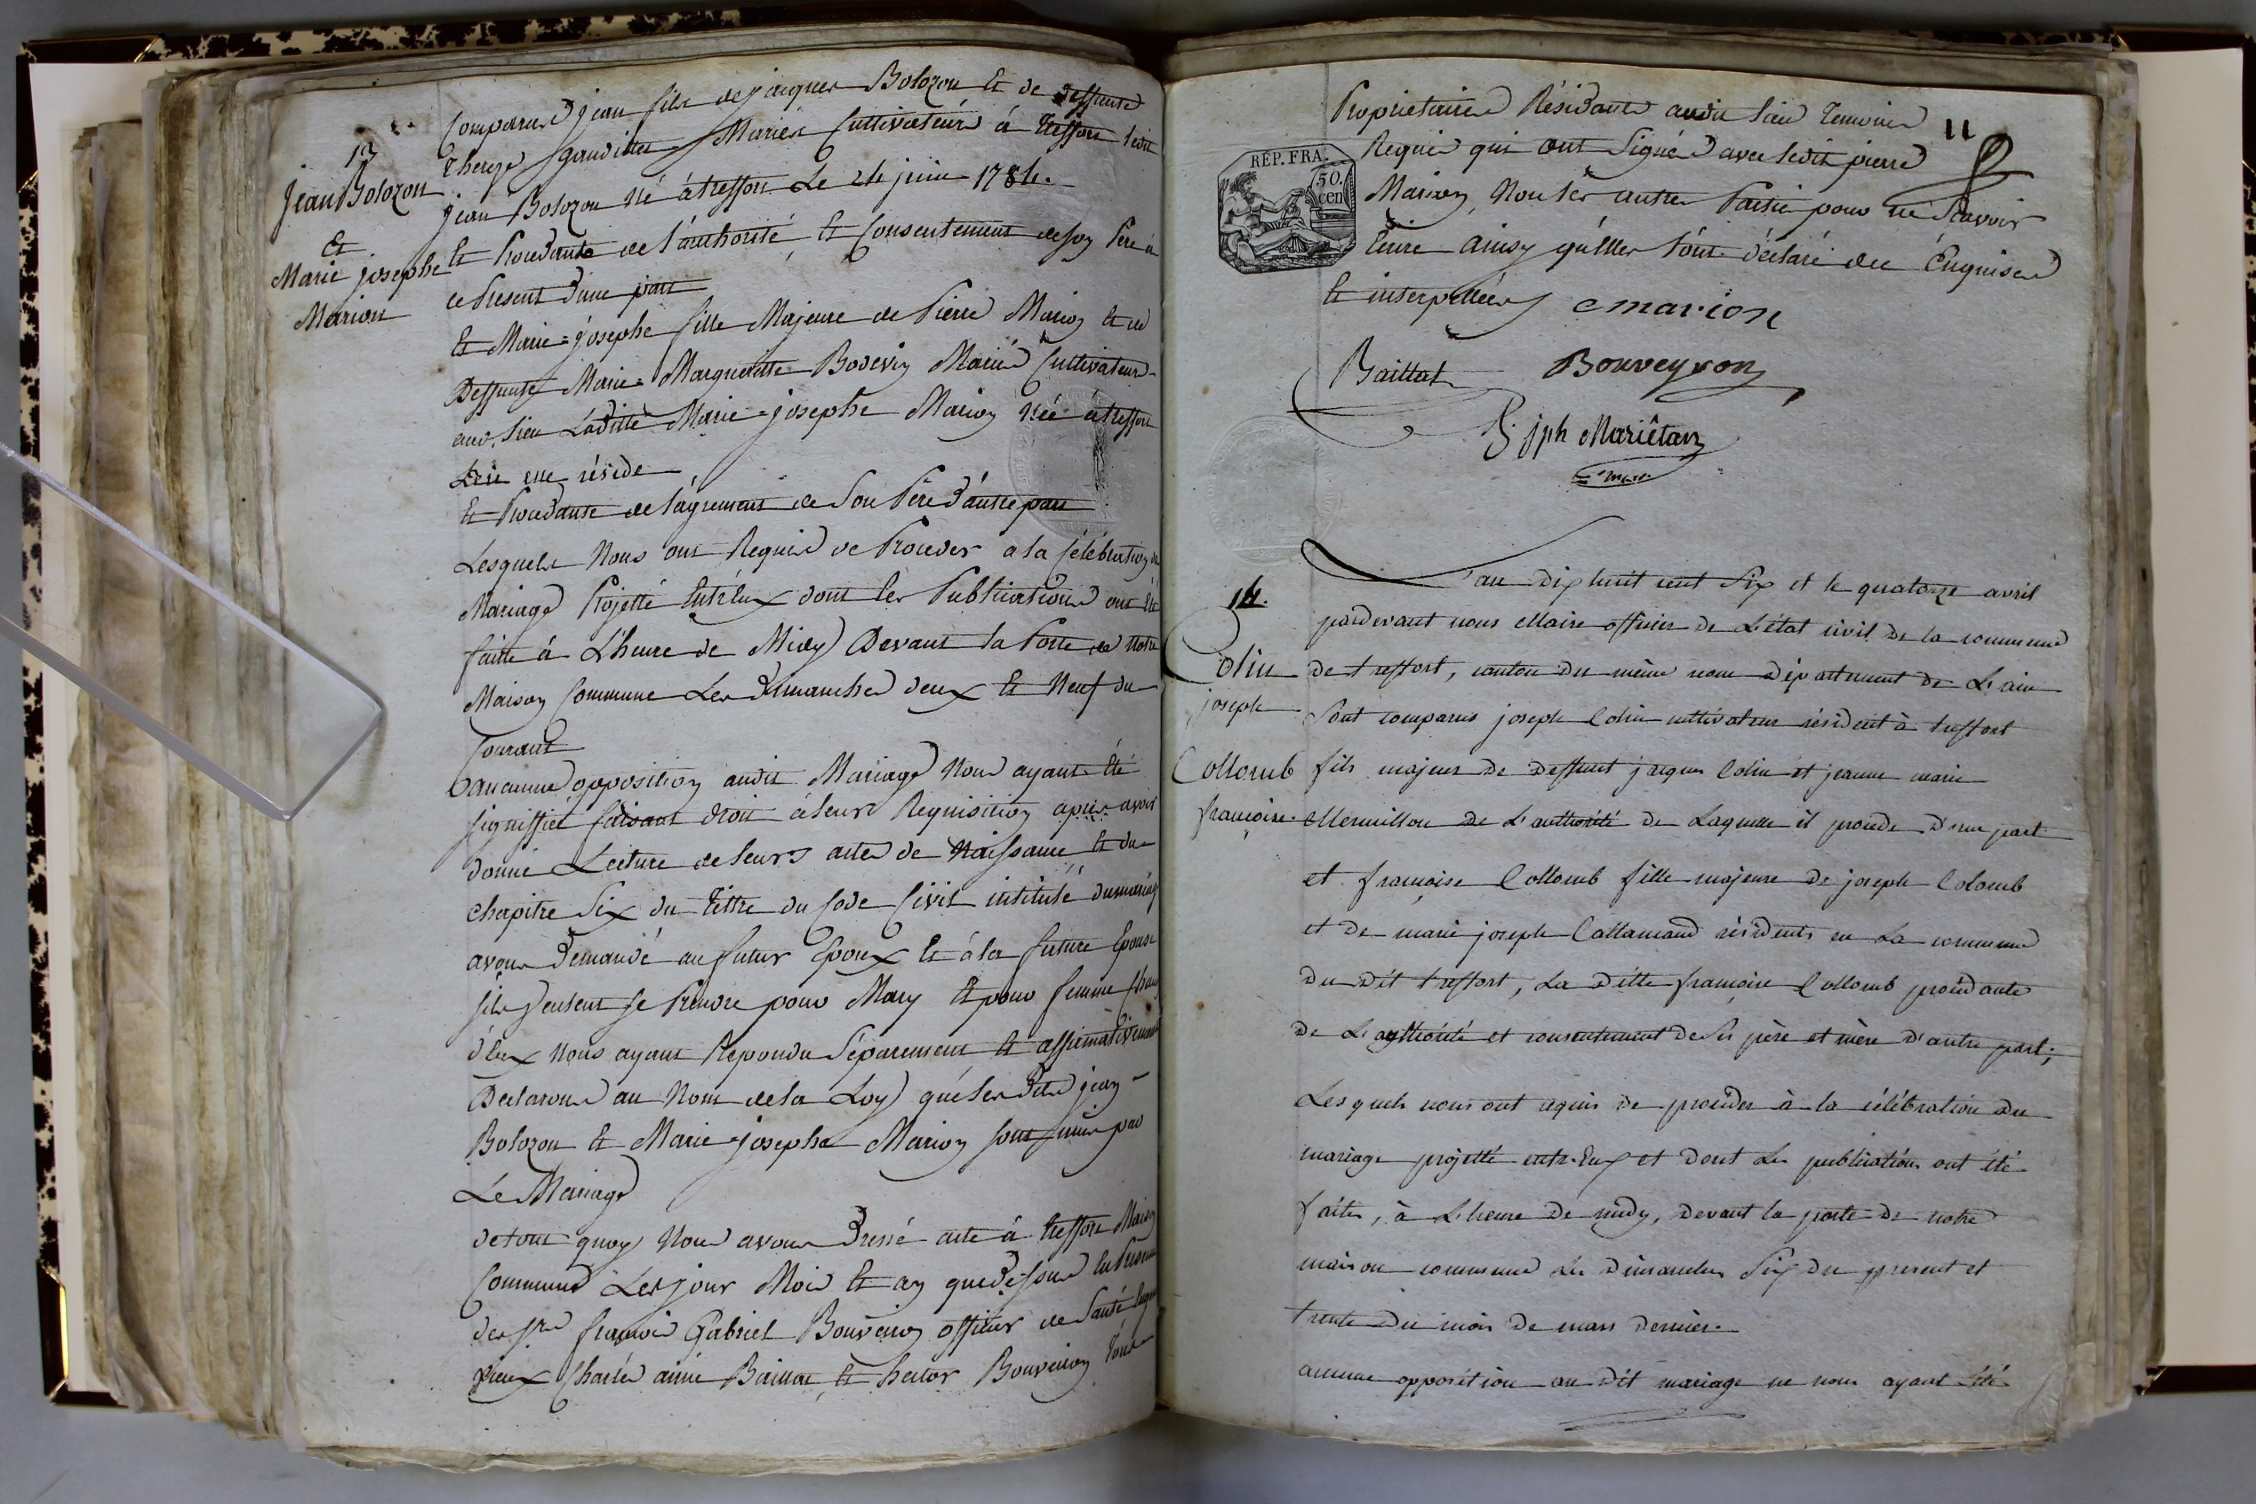 13
Jean Bolozon
Et
Marie josephe
Marion
Comparus jean fils de jacques Bolozon Et de deffunte
Thereze Gaudillet Mariés Cultivateurs á tresfort ledit
jean Bolozon né á tresfort Le 24 juin 1784.
Et Procedante de l'authorité, Et Consentement de son Pere á
ce Present d'une part
Et Marie-josephe fille Majeure de Pierre Marion Et de
Deffunte Marie-Margueritte Bodevin Mariés Cultivateurs
aud. lieu Laditte Marie-josephe Marion née a tresfort
où elle réside
Et Procedante de l'agrement de Son Père d'autre part
Lesquels Nous ont Requis de Proceder a la Célébration du
Mariage Projetté Entr'eux dont les Publications ont Eté
faitte á L'heure de Midy Devant la Porte de Notre
Maison Commune Les dimanches deux Et Neuf du
Courant
aucune opposition audit Mariage Nous ayant Eté
signiffiée faisant droit á leurs Requisition après avoir
donné Lecture de leurs actes de Naissance Et du
chapitre Six du Tittre du Code Civil intitulé du mariage
avons demandé au futur Epoux Et á la future Epouse
s'ils veulent se Prendre pour Mary Et pour femme Chacun
d'eux nous ayant Repondu Séparement Et affirmativement
Declarons au Nom de la Loy que lesdits jean
Bolozon Et Marie-josephe Marion sont unis par
Le Mariage
de tout quoy Nous avons dressé acte á tresfort Maison
Commune Les jour Mois Et an que dessus En Présence
des Srs françois Gabriel Bouveyron officier de Santé
Charles aimé Baillat, Et hector Bouveiron tous
11
Proprietaires Résidants audit lieu temoins
Requis qui ont Signés avec ledit pierre
Marion, Non les autres Partie pour ne Scavoir
Ecrire ainsy qu'elles l'ont déclaré de ce Enquises
Et interpellées
RÉP. FRA.
50.
cen
cmarion
Baillat
Bouveyron
jph Mariêtan
maire
14.
Colin
joseph
Collomb
françoise.
L'an dix huit cent Six et le quatorze avril
pardevant nous Maire officier de L'état civil de la commune
de treffort, canton du même nom département de L'ain
Sont comparus joseph Colin cultivateur résident à treffort
fils majeur de deffunt jaques Colin et jeanne marie
Mermillon de L'authorité de Laquelle il procede d'une part
et françoise Collomb fille majeure de joseph Colomb
et de marie joseph Callamand résidents en La commune
du dit treffort, La ditte françoise Collomb procédante
de L'authorité et consentement de Ses père et mère d'autre part;
Lesquels nous ont requis de procéder à la célébration du
mariage projetté entr-Eux et dont Les publications ont été
faites, à L'heure de midy, devant la porte de notre
maison commune Les dimanches Six du present et
trente du mois de mars dernier.
aucune opposition au dit mariage ne nous ayant été